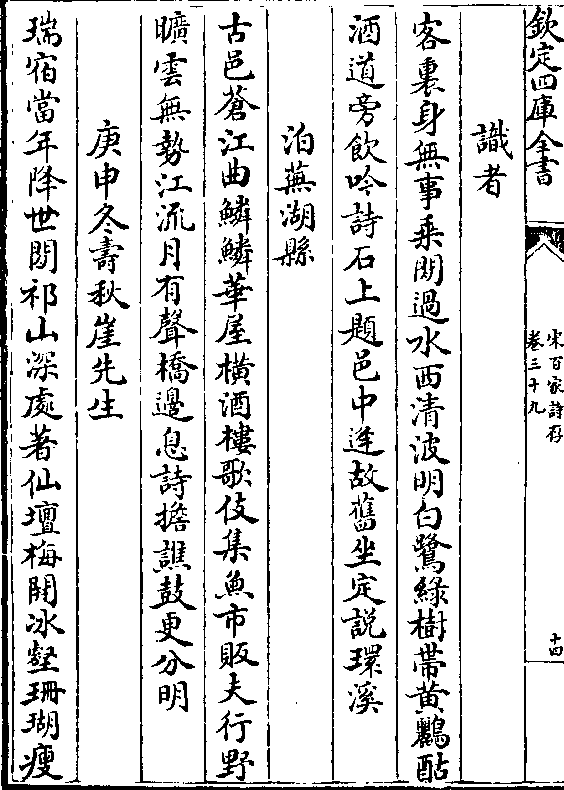 欽定四庫全書
宋百家詩存
卷三十九
十四
識者
客裏身無事乘閒過水西清波明白鷺綠樹帶黄鸝酤
酒道旁飲吟詩石上題邑中逢故舊坐定説環溪
泊蕪湖縣
古邑蒼江曲鱗鱗華屋橫酒樓歌伎集魚市販夫行野
曠雲無勢江流月有聲橋邊息詩擔譙鼓更分明
庚申冬壽秋崖先生
瑞宿當年降世閒祁山深處著仙壇梅開冰壑珊瑚瘦